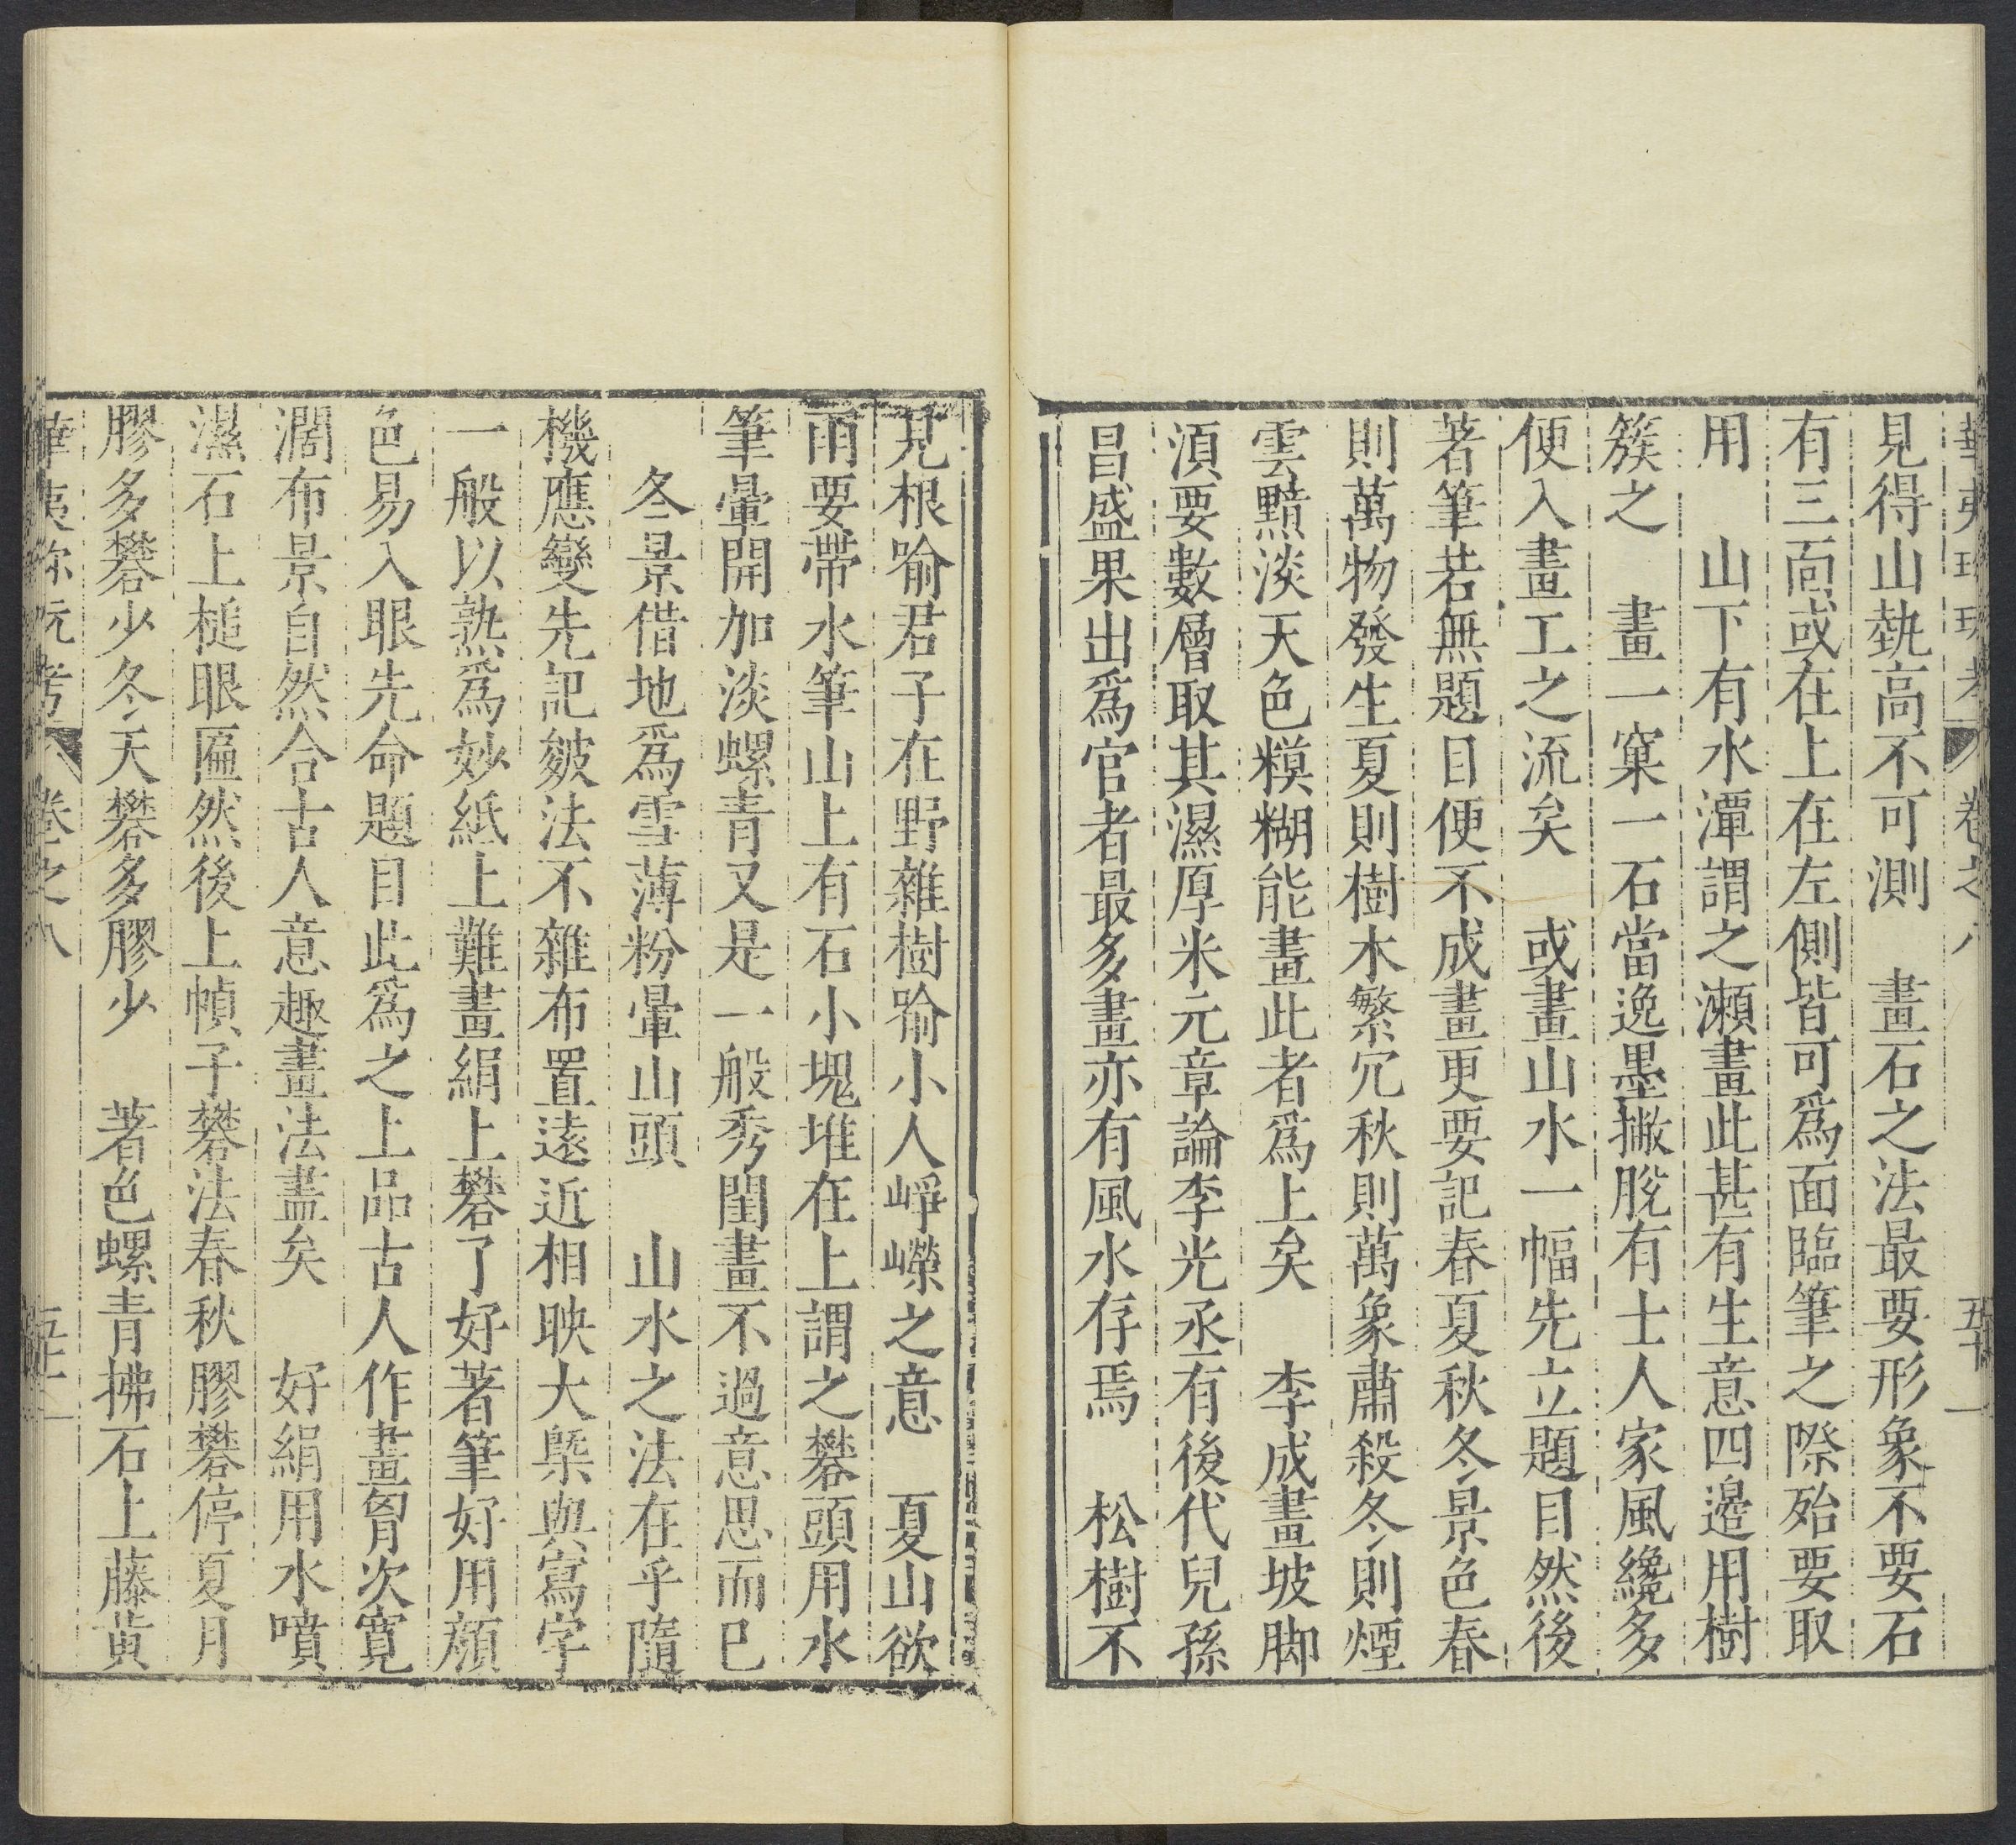 華夷珍玩考 卷之八 五十一
見得山埶高不可測 畫石之法最要形象不要石
有三面或在上在左側皆可爲面臨筆之際殆要取
用 山下有水潭謂之瀨畫此甚有生意四邉用樹
簇之 畫一窠一石當逸墨撇脫有士人家風纔多
便入畫工之流矣 或畫山水一幅先立題目然後
著筆若無題目便不成畫更要記春夏秋冬景色春
則萬物發生夏則樹木繁冗秋則萬象肅殺冬則煙
雲黯淡天色糢糊能畫此者爲上矣 李成畫坡脚
湏要數層取其濕厚米元章論李光丞有後代兒孫
昌盛果出爲官者最多畫亦有風水存焉 松樹不
見根喻君子在野雜樹喻小人崢嶸之意 夏山欲
雨要帶水筆山上有石小塊堆在上謂之礬頭用水
筆暈開加淡螺青又是一般秀閏畫不過意思而已
冬景借地爲雪薄粉暈山頭 山水之法在乎隨
機應變先記皴法不雜布置遠近相映大槩與寫字
一般以熟爲妙紙上難畫絹上礬了好著筆好用顏
色易入眼先命題目此爲之上品古人作畫胷次寬
濶布景自然合古人意趣畫法盡矣 好絹用水噴
濕石上槌眼匾然後上幀子礬法春秋膠礬停夏月
膠多礬少冬天礬多膠少 著色螺青拂石上藤黃
華夷珍玩考 卷之八 五十二